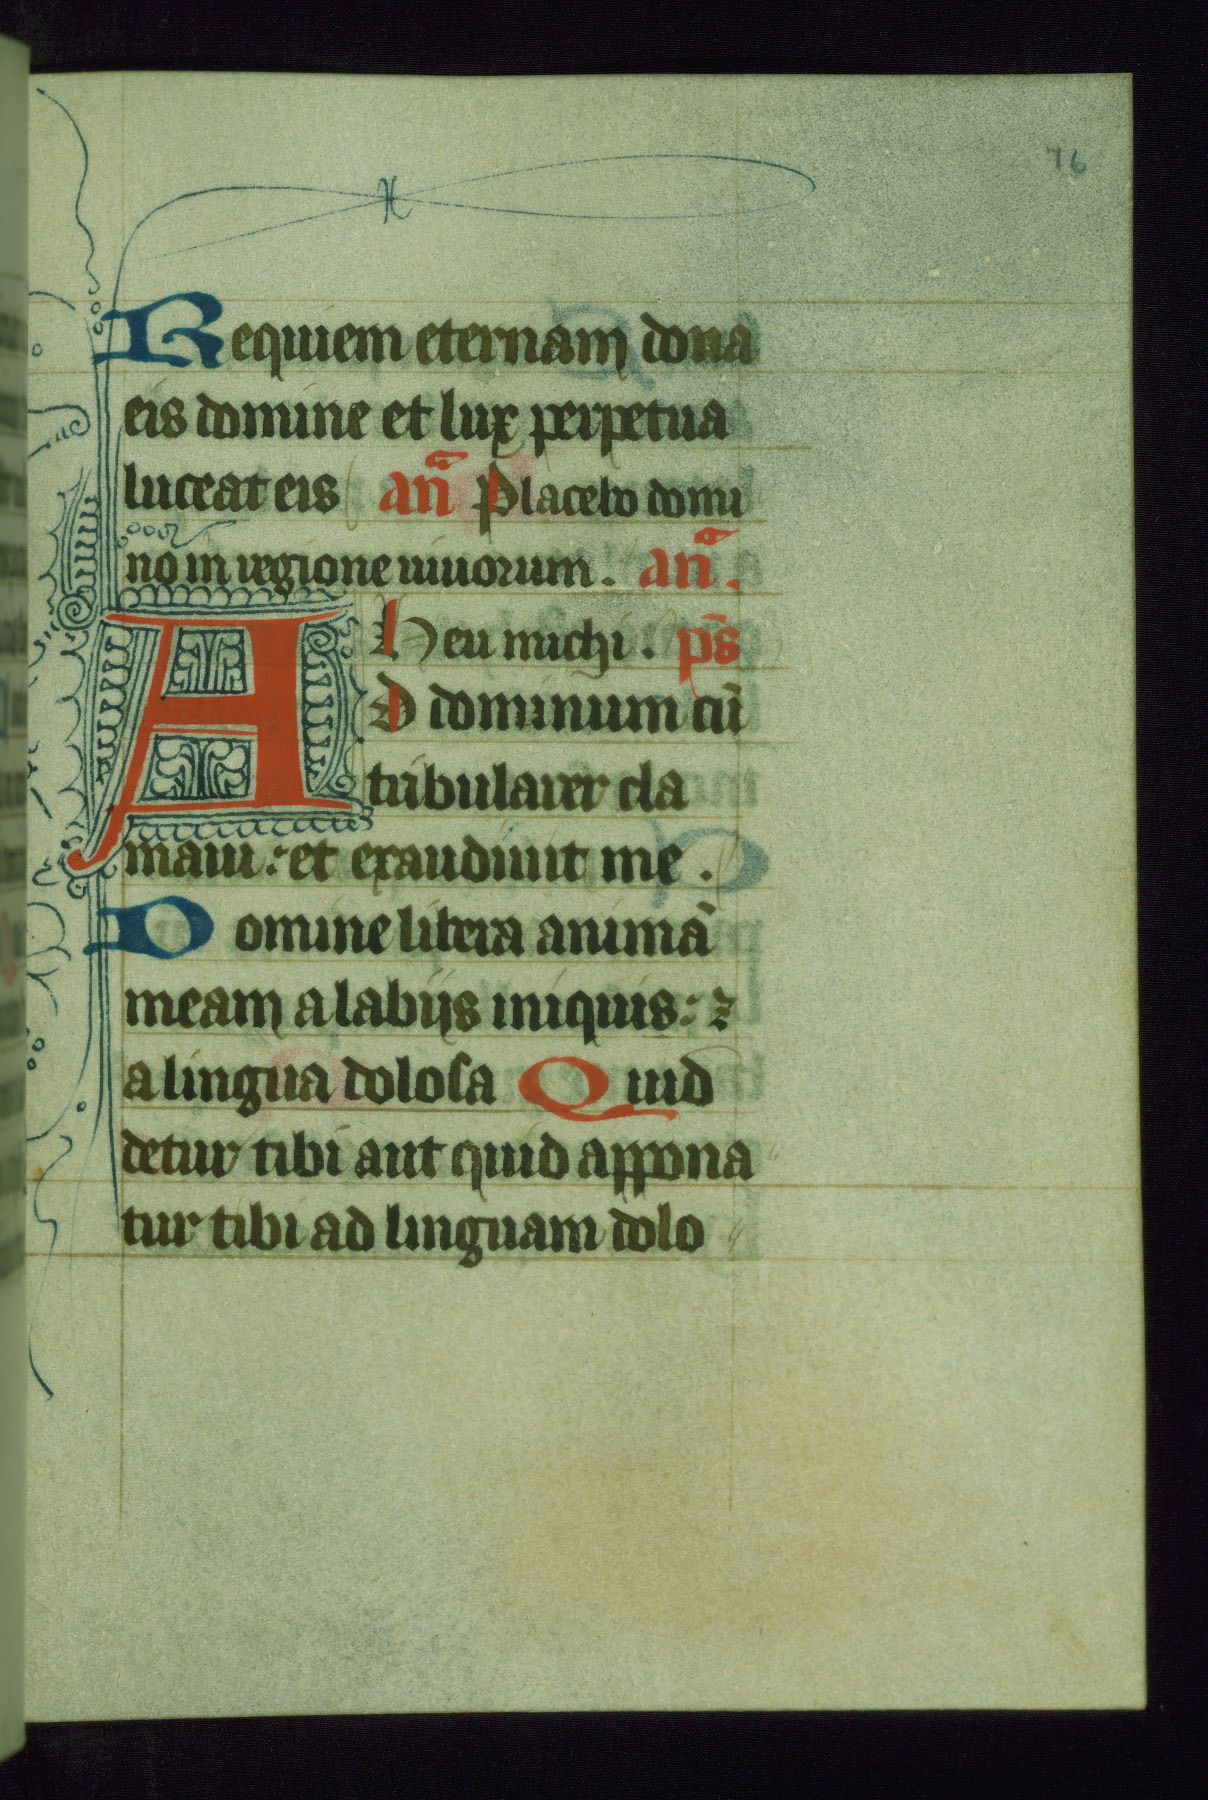 76
Requiem eternam dona
eis domine et lux perpetua
luceat eis an̄ Placebo domi
no in regione uiuorum. an̄.
Heu michi. p̄s
AD dominum cū
tribularer cla
maui: et exaudiuit me.
Domine libera animā
meam a labijs iniquis: ⁊
a lingua dolosa Quid
detur tibi aut quid appona
tur tibi ad linguam dolo